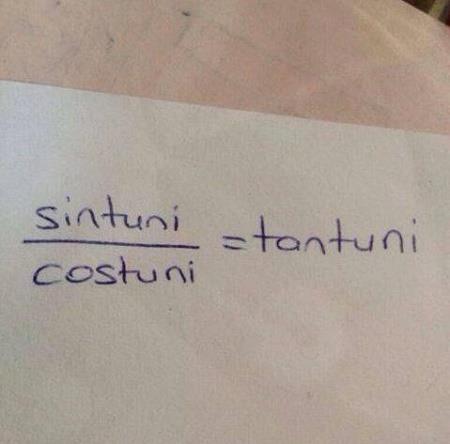 sintuni
costuni = tantuni